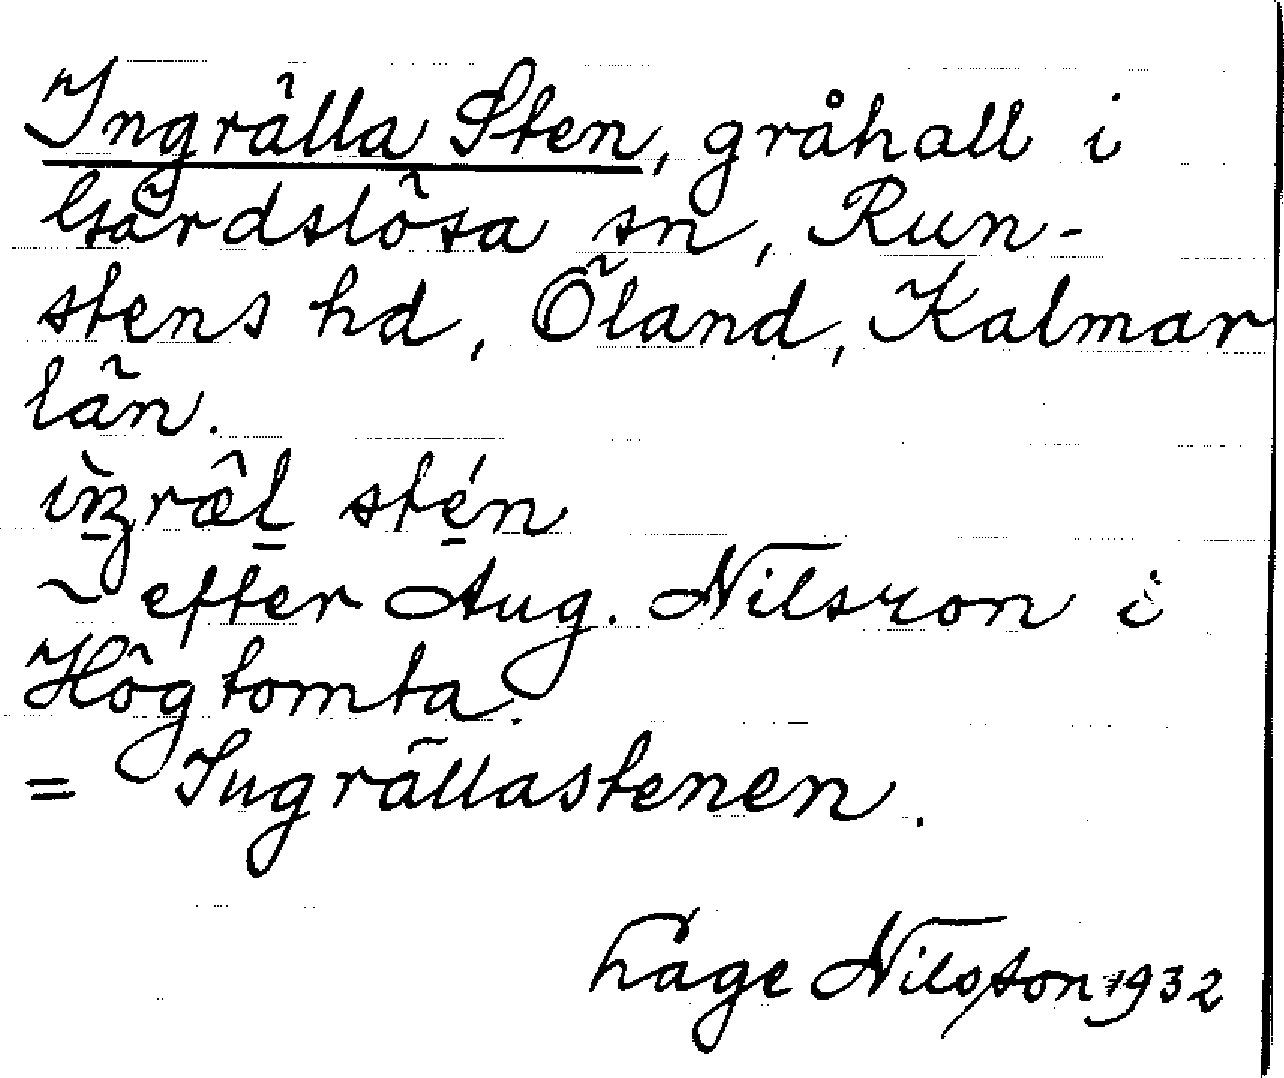 Ingrälla Sten, gråhall i
Gärdslösa sn, Run-
stens hd, Öland, Kalmar
län.
stén
~ efter Aug. Nilsson i
Högtomta.
= Ingrällastenen.
Nilsson 1932